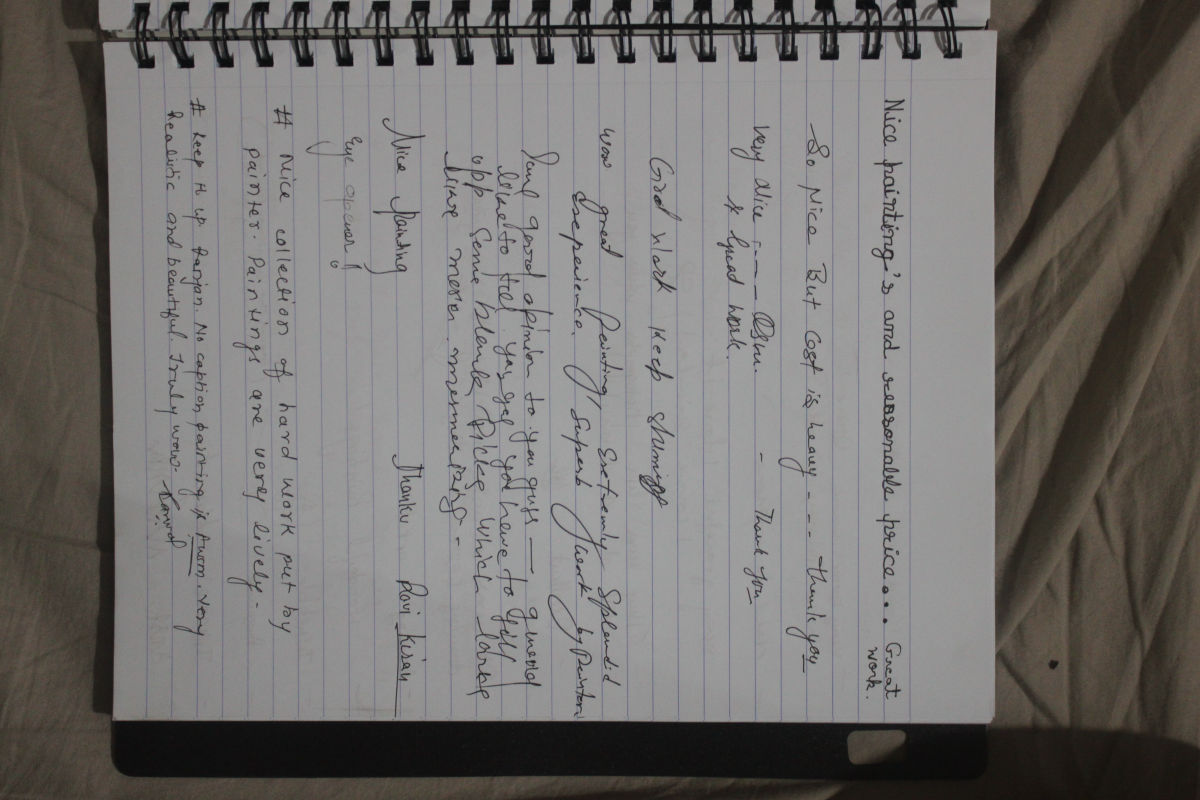 Nice painting's and resonable price... Great
work.
So Nice But Cost is heavy - - - - Thank you
very Nice - - - - - Thank you
& Good work.
Good Work Keep
wow great Painting, Extremly Splendid
Experience. Superb work by Painter
good opinion to you guys — I would
like to tell you guys you have to fill
upp some blank which looks
like more mesmerising -
Nice Painting Thanku Ravi Kisan
Eye opener!!
# Nice collection of hard work put by
painter. Paintings are very lively.
# Keep it up Ranjan. No caption, painting is Awsm. Very
Realistic and beautiful. Truly wow.